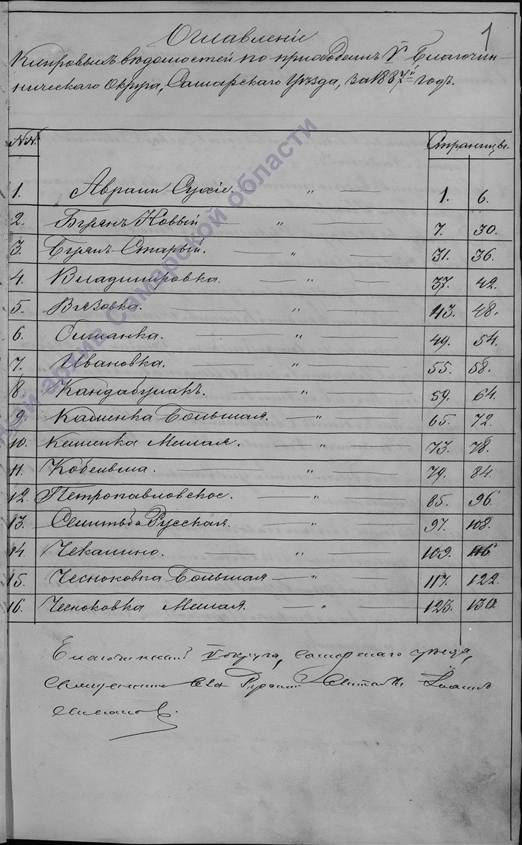 1
Оглавленіе
Клировыхъ вѣдомостей по приходамъ V Благочин-
ническаго Округа, Самарскаго Уѣзда, за 1887й годъ.
№№. Страницы.
1. Аврали Сухіе. " 1. 6.
2. Буянъ Новый " 7. 30.
3. Буянъ Старый. " 31. 36.
4. Владимировка. " 37. 42.
5. Вязовка. " 43. 48.
6. " 49. 54.
7. Ивановка. " 55. 58.
8. Кандабулакъ. " 59. 64.
9. Каменка Большая. " 65. 72.
10. Каменка Малая. " 73. 78.
11. Кобельма. " 79. 84.
12. Петропавловское. " 85. 96.
13. Селитьба Русская. " 97. 108.
14. Чекалино. " 109. 116
15. Чесноковка Большая " 117. 122.
16. Чесноковка Малая. " 123. 130.
Благочинный V округа, Самарскаго уѣзда,
Священникъ села Русской Селитьбы
архив Самарской области